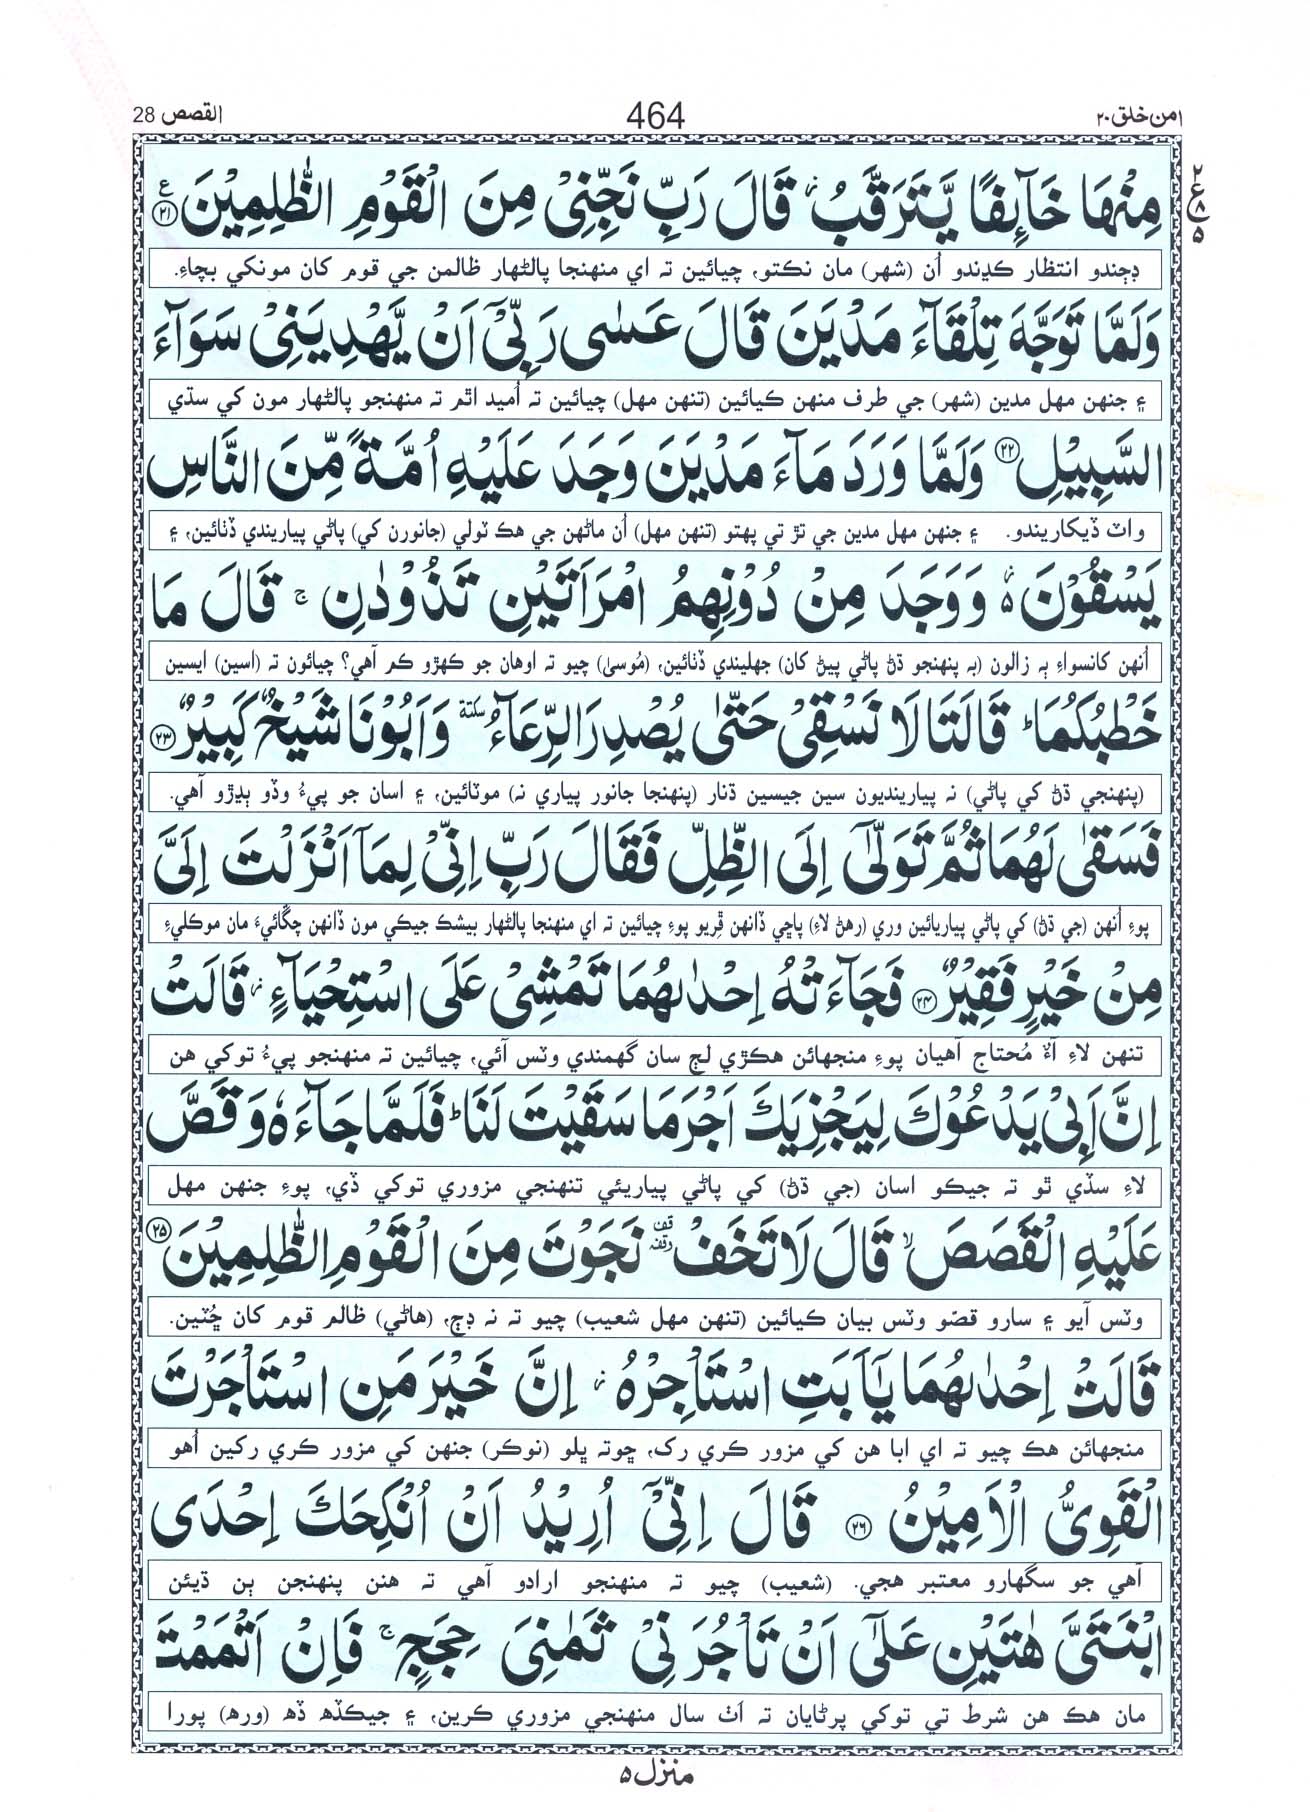 امن خلق ۲۰ 464 القصص 28
مِنْهَا خَآئِفًا يَّتَرَقَّبُ ؗ قَالَ رَبِّ نَجِّنِيْ مِنَ الْقَوْمِ الظّٰلِمِيْنَ ۲۱ ع
ڊڄندو انتظار ڪڍندو اُن (شهر) مان نڪتو، چيائين ته اي منهنجا پالڻهار ظالمن جي قوم کان مونکي بچاءِ.
وَلَمَّا تَوَجَّهَ تِلْقَآءَ مَدْيَنَ قَالَ عَسٰى رَبِّيْٓ اَنْ يَّهْدِيَنِيْ سَوَآءَ
۽ جنهن مهل مدين (شهر) جي طرف منهن ڪيائين (تنهن مهل) چيائين ته اُميد اٿم ته منهنجو پالڻهار مون کي سڌي
السَّبِيْلِ ۲۲ وَلَمَّا وَرَدَ مَآءَ مَدْيَنَ وَجَدَ عَلَيْهِ اُمَّةً مِّنَ النَّاسِ
واٽ ڏيکاريندو. ۽ جنهن مهل مدين جي تڙ تي پهتو (تنهن مهل) اُن ماڻهن جي هڪ ٽولي (جانورن کي) پاڻي پياريندي ڏٺائين، ۽
يَسْقُوْنَ ۥ۬ وَوَجَدَ مِنْ دُوْنِهِمُ امْرَاَتَيْنِ تَذُوْدٰنِ ۚ قَالَ مَا
اُنهن کانسواءِ ٻه زالون (ٻه پنهنجو ڌڻ پاڻي پيئڻ کان) جهليندي ڏٺائين، (مُوسىٰ) چيو ته اوهان جو ڪهڙو ڪم آهي؟ چيائون ته (اسين) ايسين
خَطْبُكُمَا ؕ قَالَتَا لَا نَسْقِيْ حَتّٰى يُصْدِرَ الرِّعَآءُ سكتة وَاَبُوْنَا شَيْخٌ كَبِيْرٌ ۲۳
(پنهنجي ڌڻ کي پاڻي) نه پيارينديون سين جيسين ڌنار (پنهنجا جانور پياري نه) موٽائين، ۽ اسان جو پيءُ وڏو ٻڍڙو آهي.
فَسَقٰى لَهُمَا ثُمَّ تَوَلّٰٓى اِلَى الظِّلِّ فَقَالَ رَبِّ اِنِّيْ لِمَآ اَنْزَلْتَ اِلَيَّ
پوءِ اُنهن (جي ڌڻ) کي پاڻي پياريائين وري (رهڻ لاءِ) پاڇي ڏانهن ڦِريو پوءِ چيائين ته اي منهنجا پالڻهار بيشڪ جيڪي مون ڏانهن چڱائيءَ مان موڪليءِ
مِنْ خَيْرٍ فَقِيْرٌ ۲۴ فَجَآءَتْهُ اِحْدٰىهُمَا تَمْشِيْ عَلَى اسْتِحْيَآءٍ ؗ قَالَتْ
تنهن لاءِ آءٌ مُحتاج آهيان پوءِ منجهائن هڪڙي لڄ سان گهمندي وٽس آئي، چيائين ته منهنجو پيءُ توکي هن
اِنَّ اَبِيْ يَدْعُوْكَ لِيَجْزِيَكَ اَجْرَ مَا سَقَيْتَ لَنَا ؕ فَلَمَّا جَآءَهٗ وَقَصَّ
لاءِ سڏي ٿو ته جيڪو اسان (جي ڌڻ) کي پاڻي پياريئي تنهنجي مزوري توکي ڏي، پوءِ جنهن مهل
عَلَيْهِ الْقَصَصَ ۙ قَالَ لَا تَخَفْ ۥ۫ نَجَوْتَ مِنَ الْقَوْمِ الظّٰلِمِيْنَ ۲۵
وٽس آيو ۽ سارو قصّو وٽس بيان ڪيائين (تنهن مهل شعيب) چيو ته نه ڊڄ، (هاڻي) ظالم قوم کان ڇُٽين.
قَالَتْ اِحْدٰىهُمَا يٰٓاَبَتِ اسْتَاْجِرْهُ ؗ اِنَّ خَيْرَ مَنِ اسْتَاْجَرْتَ
منجهائن هڪ چيو ته اي ابا هن کي مزور ڪري رک، ڇوته ڀلو (نوڪر) جنهن کي مزور ڪري رکين اُهو
الْقَوِيُّ الْاَمِيْنُ ۲۶ قَالَ اِنِّيْٓ اُرِيْدُ اَنْ اُنْكِحَكَ اِحْدَى
آهي جو سگهارو معتبر هجي. (شعيب) چيو ته منهنجو ارادو آهي ته هنن پنهنجن ٻن ڌيئن
ابْنَتَيَّ هٰتَيْنِ عَلٰٓى اَنْ تَاْجُرَنِيْ ثَمٰنِيَ حِجَجٍ ۚ فَاِنْ اَتْمَمْتَ
مان هڪ هن شرط تي توکي پرڻايان ته اَٺ سال منهنجي مزوري ڪرين، ۽ جيڪڏهه ڏهه (ورهه) پورا
منزل ۵